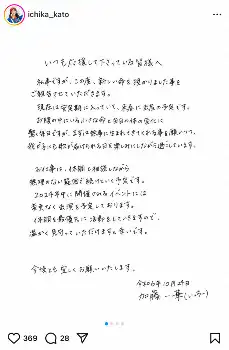 ichika_kato
いつも応援して下さっている皆様へ
私事ですが、この度、新しい命を授かりました事を
ご報告させていただきます。
現在は安定期に入っていて、来春に出産の予定です。
お腹の中にいる小さな命と自分の体の変化に
驚く毎日ですが、まずは無事に生まれてきてくれる事を願いつつ、
我が子に会える日を楽しみにしながら過ごしています。
お仕事は、体調と相談しながら
無理のない範囲で続けていく予定です。
2024年中に開催されるイベントには
変更なく出演を予定しております。
体調を最優先に活動をしていきますので、
温かく見守っていただけますと幸いです。
今後とも宜しくお願いいたします。
令和6年10月24日
加藤一華(いちか)
369
28
4